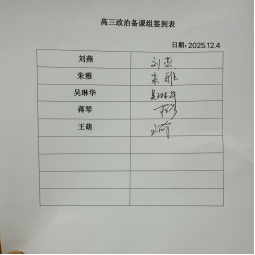 高三政治备课组签到表
日期:2025.12.4
刘燕
朱雅 朱雅
吴琳华 吴琳华
蒋琴
王萌